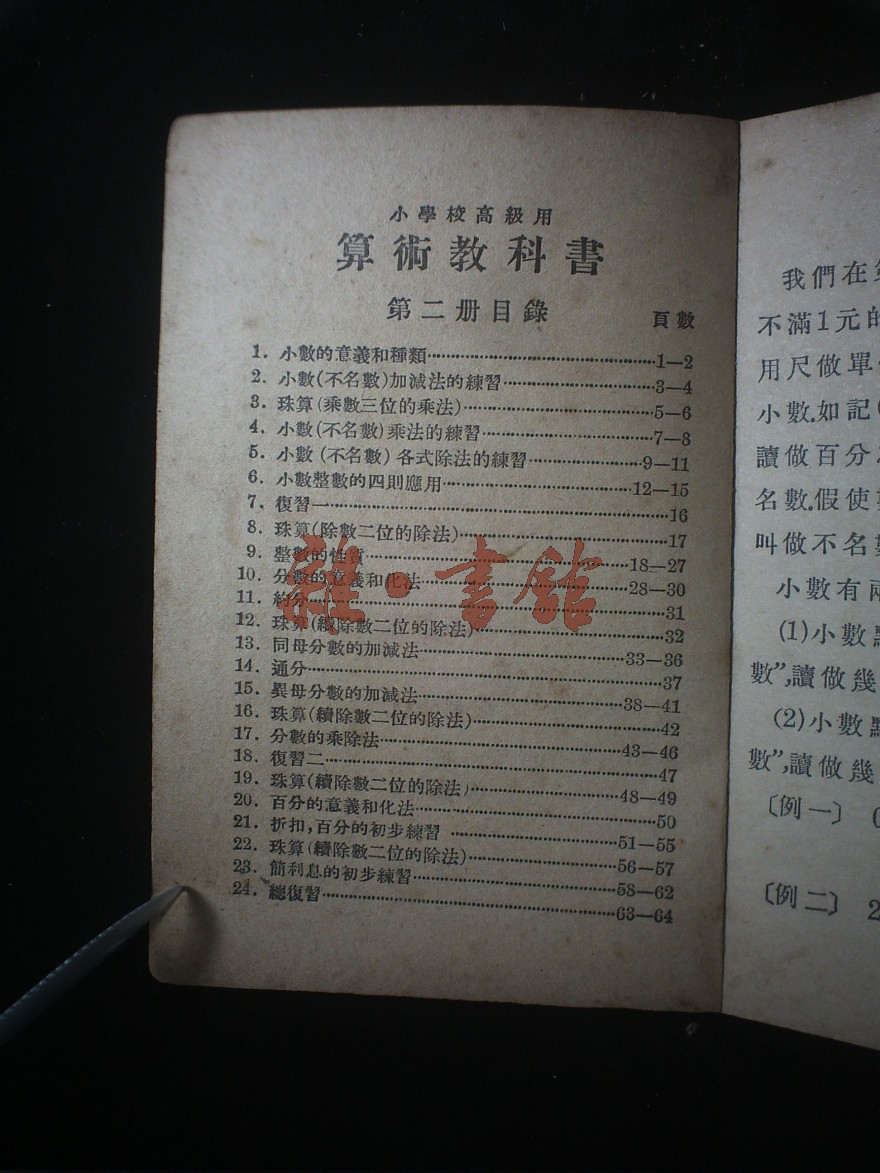 小學校高級用
算術教科書
第二册目錄 頁數
1. 小數的意義和種類……1—2
2. 小數(不名數)加減法的練習……3—4
3. 珠算(乘數三位的乘法)……5—6
4. 小數(不名數)乘法的練習……7—8
5. 小數(不名數)各式除法的練習……9—11
6. 小數整數的四則應用……12—15
7. 復習一……16
8. 珠算(除數二位的除法)……17
9. 整數的性質……18—27
10. 分數的意義和化法……28—30
11. 約分……31
12. 珠算(續除數二位的除法)……32
13. 同母分數的加減法……33—36
14. 通分……37
15. 異母分數的加減法……38—41
16. 珠算(續除數二位的除法)……42
17. 分數的乘除法……43—46
18. 復習二……47
19. 珠算(續除數二位的除法)……48—49
20. 百分的意義和化法……50
21. 折扣,百分的初步練習……51—55
22. 珠算(續除數二位的除法)……56—57
23. 簡利息的初步練習……58—62
24. 總復習……63—64
雜·書館
我們在
不滿1元的
用尺做單
小數.如記(
讀做百分
名數.假使
叫做不名數
小數有兩
(1)小數點
數”,讀做幾
(2)小數點
數”,讀做幾
〔例一〕
〔例二〕 2